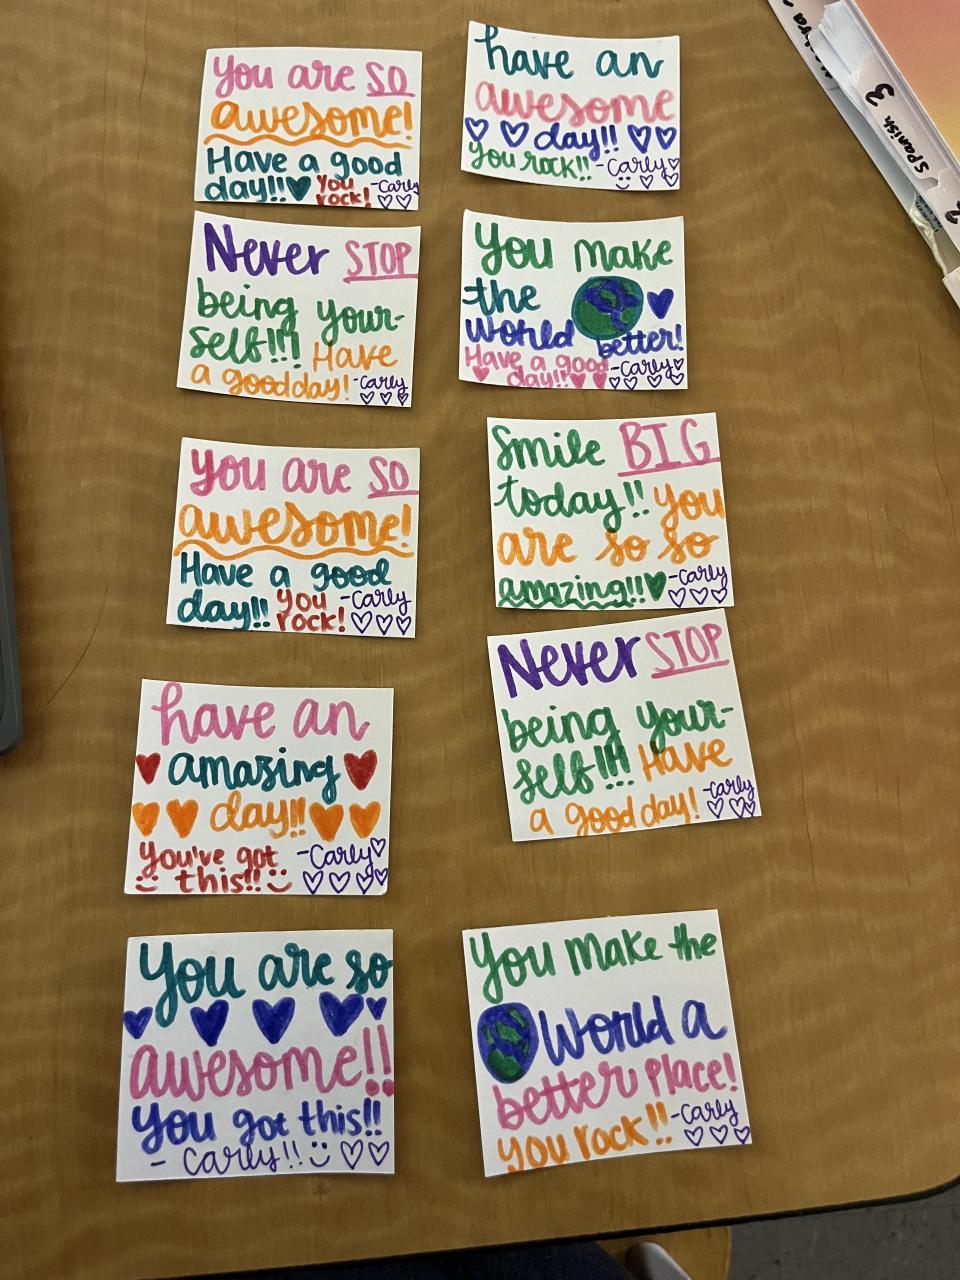 You are so
awesome!
Have a good
day!! You
rock! -Carly
have an
awesome
day!!
You rock!! -Carly
Never STOP
being your-
self!!! Have
a good day! -Carly
You make
the
world better!
Have a good
day!! -Carly
You are so
awesome!
Have a good
day!! You
rock! -Carly
Smile BIG
today!! You
are so so
amazing!! -Carly
have an
amazing
day!!
You've got
this!! -Carly
Never STOP
being your-
self!!! Have
a good day! -Carly
You are so
awesome!!
You got this!!
- Carly!!
You make the
world a
better place!
You rock!! -Carly
Spanish 3